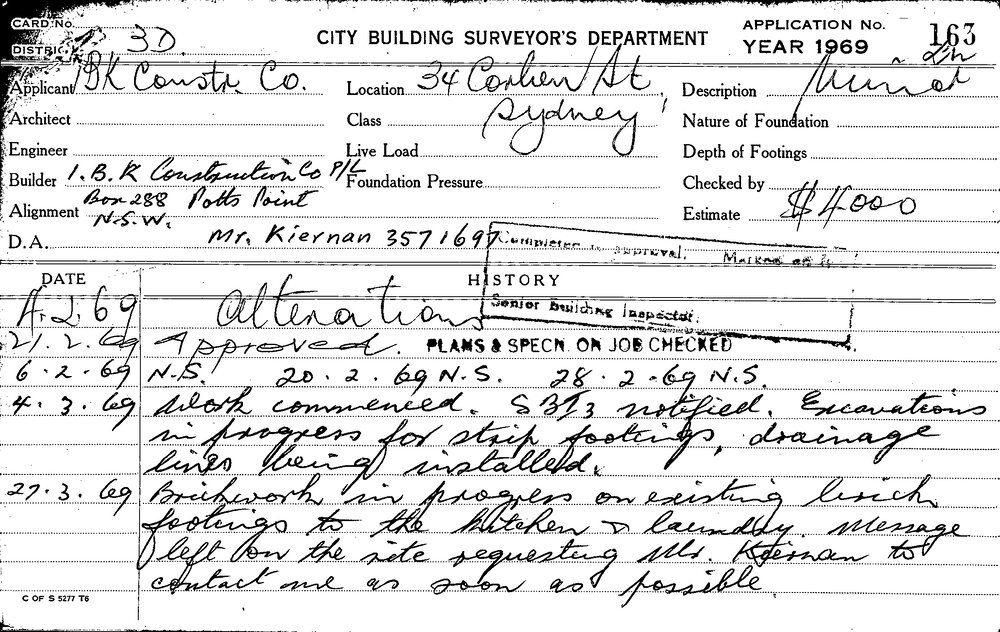 CARD No.
DISTRICT 3D.
CITY BUILDING SURVEYOR'S DEPARTMENT
APPLICATION No. 163
YEAR 1969
Applicant IBK Constr. Co.
Location 34 St
Description Minor
Architect
Class Sydney
Nature of Foundation
Engineer
Live Load
Depth of Footings
Builder I.B.K Construction Co P/L
Foundation Pressure
Checked by
Box 288 Potts Point
Alignment N.S.W.
Estimate $4000
D.A. Mr. Kiernan 3571697
Completed to approval. Marked off
DATE
HISTORY
4.2.69 Alterations
Senior Building Inspector.
21.2.69 Approved. PLANS & SPECN. ON JOB CHECKED
6.2.69 N.S. 20.2.69 N.S. 28.2.69 N.S.
4.3.69 Work commenced. notified. Excavations
in progress for strip footings, drainage
lines being installed.
27.3.69 Brickwork in progress on existing brick
footings to the kitchen & laundry. Message
left on the site requesting Mr. Kiernan to
contact me as soon as possible.
C OF S 5277 T6